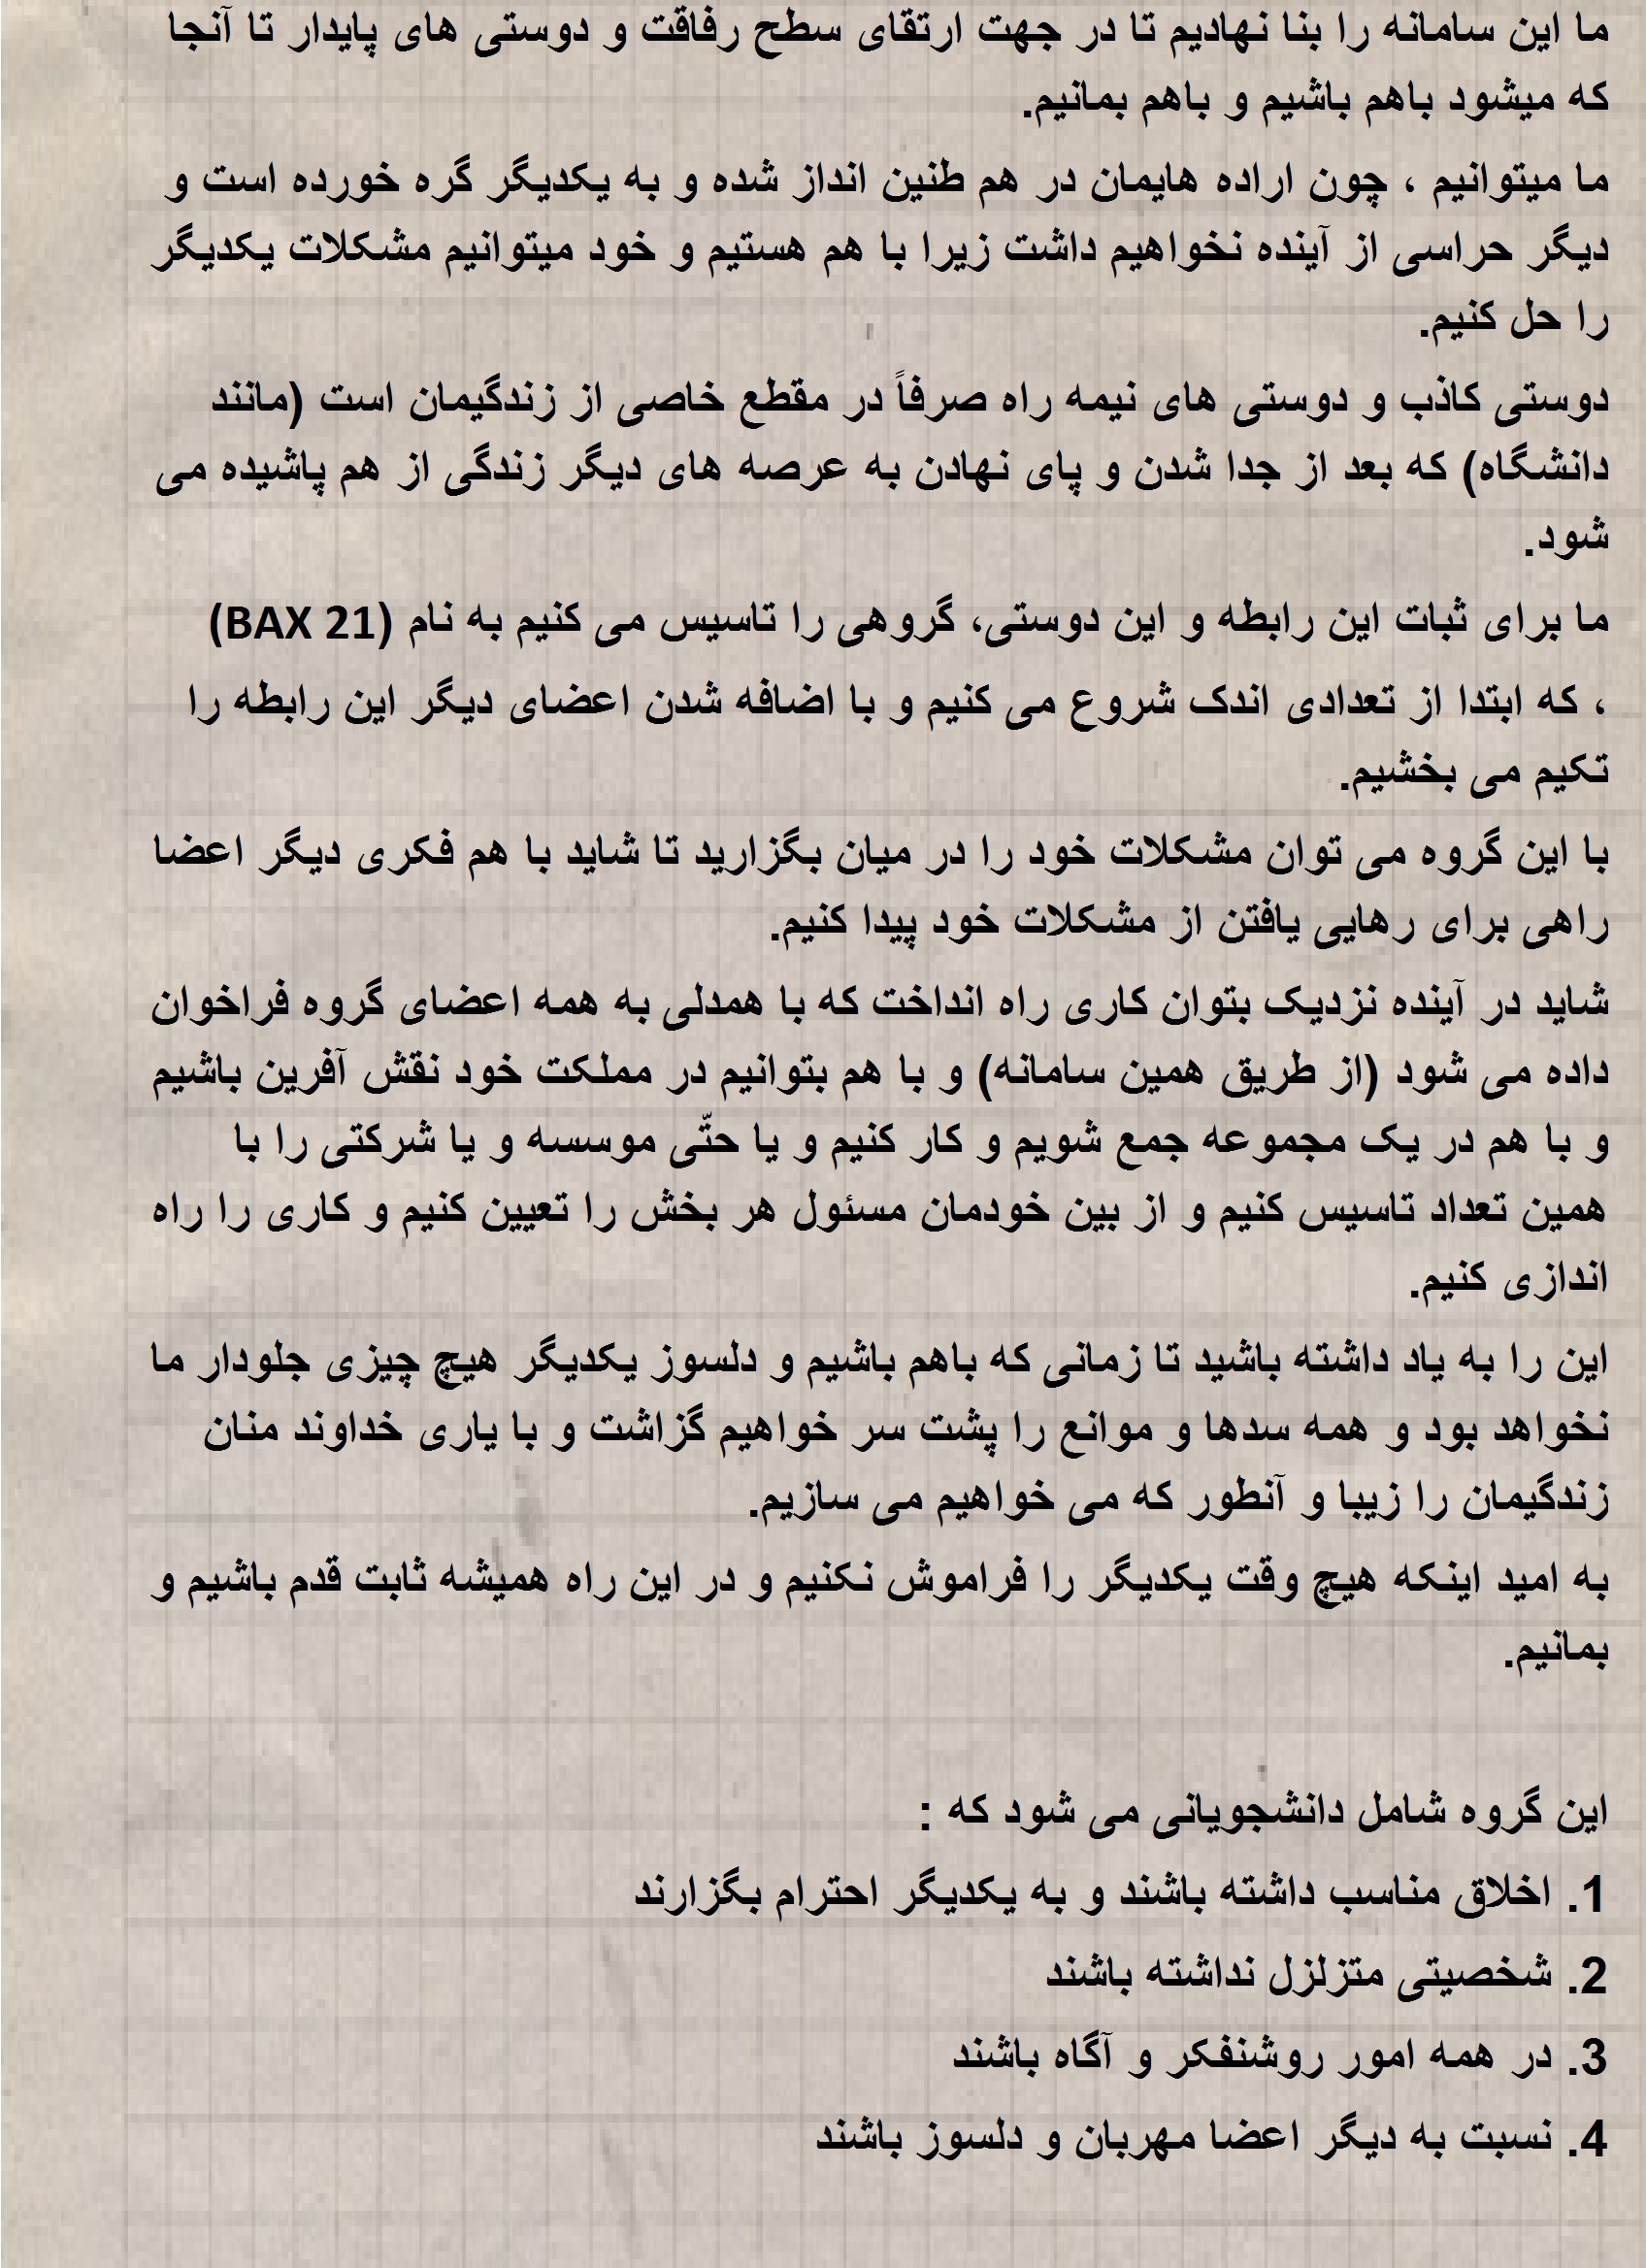 ما این سامانه را بنا نهادیم تا در جهت ارتقای سطح رفاقت و دوستی های پایدار تا آنجا
که میشود باهم باشیم و باهم بمانیم.
ما میتوانیم ، چون اراده هایمان در هم طنین انداز شده و به یکدیگر گره خورده است و
دیگر حراسی از آینده نخواهیم داشت زیرا با هم هستیم و خود میتوانیم مشکلات یکدیگر
را حل کنیم.
دوستی کاذب و دوستی های نیمه راه صرفاً در مقطع خاصی از زندگیمان است (مانند
دانشگاه) که بعد از جدا شدن و پای نهادن به عرصه های دیگر زندگی از هم پاشیده می
شود.
ما برای ثبات این رابطه و این دوستی، گروهی را تاسیس می کنیم به نام (BAX 21)
، که ابتدا از تعدادی اندک شروع می کنیم و با اضافه شدن اعضای دیگر این رابطه را
تکیم می بخشیم.
با این گروه می توان مشکلات خود را در میان بگزارید تا شاید با هم فکری دیگر اعضا
راهی برای رهایی یافتن از مشکلات خود پیدا کنیم.
شاید در آینده نزدیک بتوان کاری راه انداخت که با همدلی به همه اعضای گروه فراخوان
داده می شود (از طریق همین سامانه) و با هم بتوانیم در مملکت خود نقش آفرین باشیم
و با هم در یک مجموعه جمع شویم و کار کنیم و یا حتّی موسسه و یا شرکتی را با
همین تعداد تاسیس کنیم و از بین خودمان مسئول هر بخش را تعیین کنیم و کاری را راه
اندازی کنیم.
این را به یاد داشته باشید تا زمانی که باهم باشیم و دلسوز یکدیگر هیچ چیزی جلودار ما
نخواهد بود و همه سدها و موانع را پشت سر خواهیم گزاشت و با یاری خداوند منان
زندگیمان را زیبا و آنطور که می خواهیم می سازیم.
به امید اینکه هیچ وقت یکدیگر را فراموش نکنیم و در این راه همیشه ثابت قدم باشیم و
بمانیم.
این گروه شامل دانشجویانی می شود که :
1. اخلاق مناسب داشته باشند و به یکدیگر احترام بگزارند
2. شخصیتی متزلزل نداشته باشند
3. در همه امور روشنفکر و آگاه باشند
4. نسبت به دیگر اعضا مهربان و دلسوز باشند